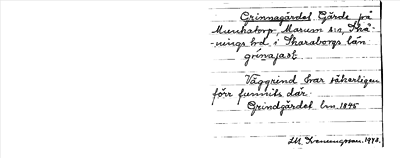 Grinnagärdet. Gärde på
Munkatorp, Marum sn, Skå-
nings hd, i Skaraborgs län
grinajast
Väggrind har säkerligen
förr funnits där.
Grindgärdet lm. 1845
Svenungsson. 1948.